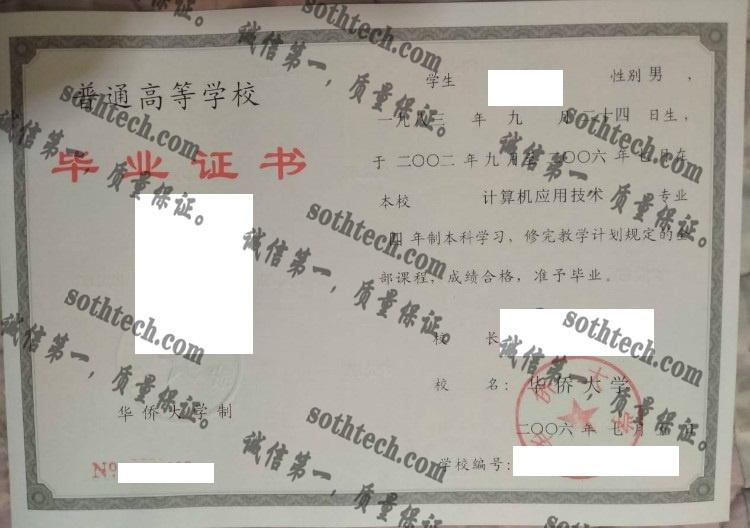 普通高等学校
毕业证书
华侨大学制
No
学生 性别 男 ,
一九八三 年 九 月 二十四 日生,
于 二〇〇二 年 九 月至 二〇〇六 年 七 月在
本校 计算机应用技术 专业
四 年制本科学习,修完教学计划规定的全
部课程,成绩合格,准予毕业。
校 长
校 名: 华侨大学
二〇〇六 年 七 月 日
学校编号:
sothtech.com
诚信第一,质量保证。
sothtech.com
诚信第一,质量保证。
sothtech.com
诚信第一,质量保证。
sothtech.com
诚信第一,质量保证。
sothtech.com
诚信第一,质量保证。
sothtech.com
诚信第一,质量保证。
sothtech.com
诚信第一,质量保证。